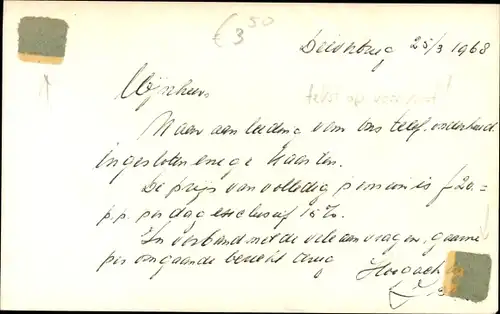 € 3 50
25/3 1968
Mijnheer,
Naar aanleiding van ons telef. onderhoud
ingesloten enige kaarten.
De prijs van volledig pension is f 20.=
p.p. per dag exclusief 15%.
In verband met de vele aanvragen, gaarne
per omgaande bericht terug
Hoogachtend